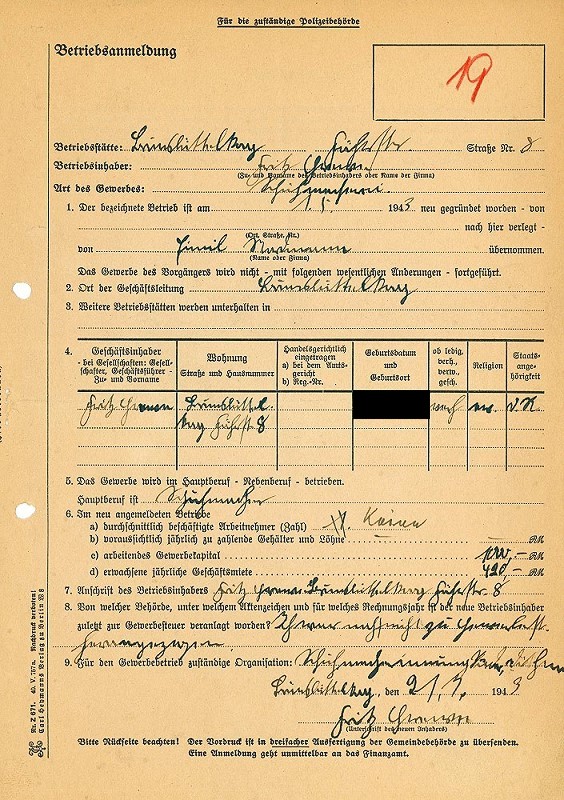 Für die zuständige Polizeibehörde
Betriebsanmeldung
19
Betriebsstätte: Brunsbüttelkoog Straße Nr. 8
Betriebsinhaber: Fritz
(Zu- und Vorname des Betriebsinhabers oder Name der Firma)
Art des Gewerbes: Schuhmacherei
1. Der bezeichnete Betrieb ist am 1.5. 1943 neu gegründet worden - von
nach hier verlegt -
(Ort, Straße, Nr.)
von Emil übernommen.
(Name oder Firma)
Das Gewerbe des Vorgängers wird nicht - mit folgenden wesentlichen Änderungen - fortgeführt.
2. Ort der Geschäftsleitung Brunsbüttelkoog
3. Weitere Betriebsstätten werden unterhalten in
4. Geschäftsinhaber
- bei Gesellschaften: Gesell-
schafter, Geschäftsführer -
Zu- und Vorname
Wohnung
Straße und Hausnummer
Handelsgerichtlich
eingetragen
a) bei dem Amts-
gericht
b) Reg.-Nr.
Geburtsdatum
und
Geburtsort
ob ledig,
verh.,
verw.,
gesch.
Religion
Staats-
ange-
hörigkeit
Fritz Brunsbüttel-
koog 8
5. Das Gewerbe wird im Hauptberuf - Nebenberuf - betrieben.
Hauptberuf ist Schuhmacher
6. Im neu angemeldeten Betriebe
a) durchschnittlich beschäftigte Arbeitnehmer (Zahl) Keine
b) voraussichtlich jährlich zu zahlende Gehälter und Löhne — RM
c) arbeitendes Gewerbekapital RM
d) erwachsene jährliche Geschäftsmiete 420,— RM
7. Anschrift des Betriebsinhabers Fritz Brunsbüttelkoog 8
8. Von welcher Behörde, unter welchem Aktenzeichen und für welches Rechnungsjahr ist der neue Betriebsinhaber
zuletzt zur Gewerbesteuer veranlagt worden? Ich war noch nicht zu Gewerbest.
herangezogen.
9. Für den Gewerbebetrieb zuständige Organisation: Schuhmacherinnung
Brunsbüttelkoog, den 1943
Fritz
(Unterschrift des neuen Inhabers)
Bitte Rückseite beachten! Der Vordruck ist in dreifacher Ausfertigung der Gemeindebehörde zu übersenden.
Eine Anmeldung geht unmittelbar an das Finanzamt.
Nachdruck verboten!
Carl Heymanns Verlag zu Berlin W 8